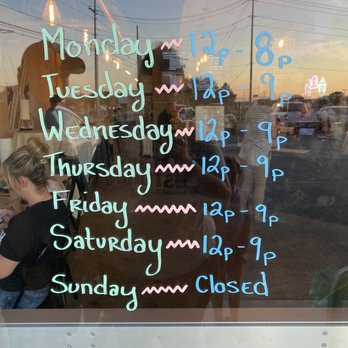 Monday 12p - 8p
Tuesday 12p - 9p
Wednesday 12p - 9p
Thursday 12p - 9p
Friday 12p - 9p
Saturday 12p - 9p
Sunday Closed